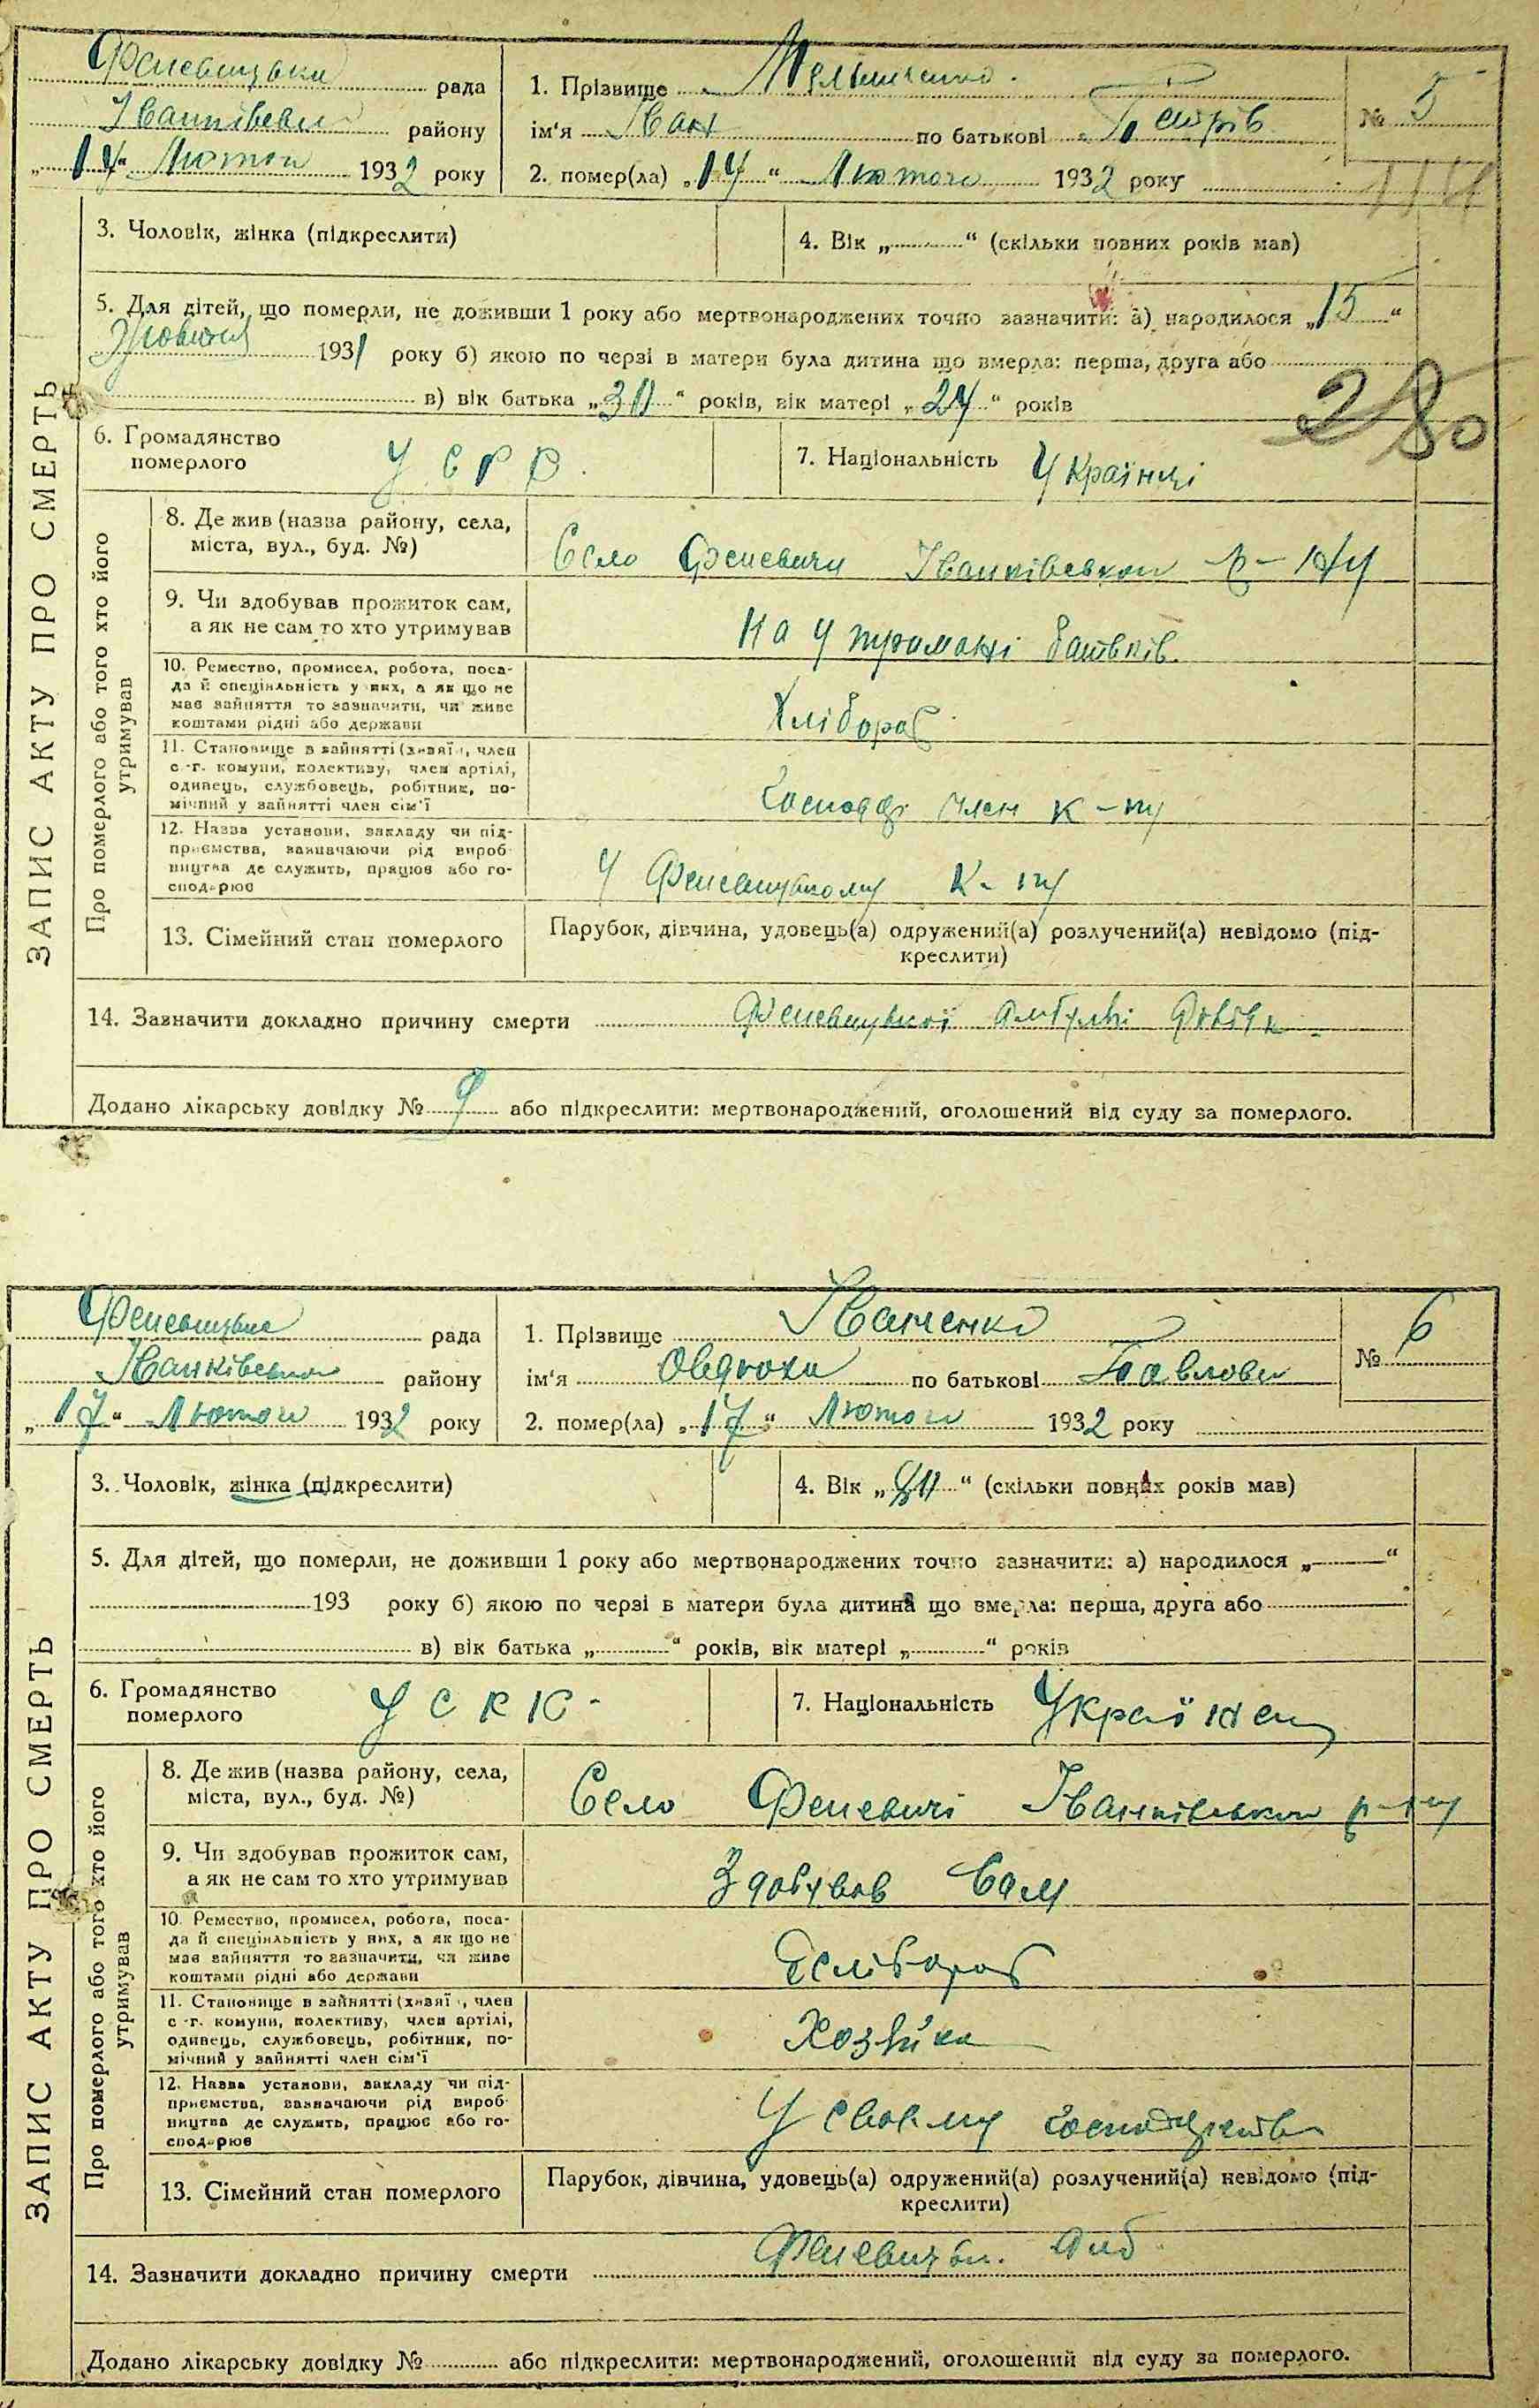 Феневицька рада
Іванківськ району
„17“ Лютого 1932 року
1. Прізвище
ім'я Іван по батькові Петрів
2. помер(ла) „17“ Лютого 1932 року
№ 5
3. Чоловік, жінка (підкреслити)
4. Вік „ “ (скільки повних років мав)
5. Для дітей, що померли, не доживши 1 року або мертвонароджених точно зазначити: а) народилося „15“
Жовтня 1931 року б) якою по черзі в матери була дитина що вмерла: перша, друга або
в) вік батька „30“ років, вік матері „24“ років
280
6. Громадянство
померлого
У С Р Р.
7. Національність Українці
ЗАПИС АКТУ ПРО СМЕРТЬ
Про померлого або того хто його
утримував
8. Де жив (назва району, села,
міста, вул., буд. №)
Село Феневичи Іванківського р-ну
9. Чи здобував прожиток сам,
а як не сам то хто утримував
На утриманні батьків
10. Ремество, промисел, робота, поса-
да й спеціяльність у них, а як що не
має зайняття то зазначити, чи живе
коштами рідні або держави
Хлібороб
11. Становище в зайнятті (хазяї , член
с.-г. комуни, колективу, член артілі,
одинець, службовець, робітник, по-
мічний у зайнятті член сім'ї
член к-пу
12. Назва установи, закладу чи під-
приємства, зазначаючи рід вироб-
ництва де служить, працює або го-
сподарює
У Феневицькому к-пу
13. Сімейний стан померлого
Парубок, дівчина, удовець(а) одружений(а) розлучений(а) невідомо (під-
креслити)
14. Зазначити докладно причину смерти Феневицької Амбул.
Додано лікарську довідку № 9 або підкреслити: мертвонароджений, оголошений від суду за померлого.
Феневицька рада
Іванківського району
„17“ Лютого 1932 року
1. Прізвище Іваненко
ім'я Овдюха по батькові Павлова
2. помер(ла) „17“ Лютого 1932 року
№ 6
3. Чоловік, жінка (підкреслити)
4. Вік „ “ (скільки повних років мав)
5. Для дітей, що померли, не доживши 1 року або мертвонароджених точно зазначити: а) народилося „ “
193 року б) якою по черзі в матери була дитина що вмерла: перша, друга або
в) вік батька „ “ років, вік матері „ “ років
6. Громадянство
померлого
У С Р Р -
7. Національність Українец
ЗАПИС АКТУ ПРО СМЕРТЬ
Про померлого або того хто його
утримував
8. Де жив (назва району, села,
міста, вул., буд. №)
Село Феневичі Іванківського р-ну
9. Чи здобував прожиток сам,
а як не сам то хто утримував
Здобував Сам
10. Ремество, промисел, робота, поса-
да й спеціяльність у них, а як що не
має зайняття то зазначити, чи живе
коштами рідні або держави
Хлібороб
11. Становище в зайнятті (хазяї , член
с.-г. комуни, колективу, член артілі,
одинець, службовець, робітник, по-
мічний у зайнятті член сім'ї
Хозяйка
12. Назва установи, закладу чи під-
приємства, зазначаючи рід вироб-
ництва де служить, працює або го-
сподарює
У своєму господарстві
13. Сімейний стан померлого
Парубок, дівчина, удовець(а) одружений(а) розлучений(а) невідомо (під-
креслити)
14. Зазначити докладно причину смерти Феневицьк. Амб
Додано лікарську довідку № або підкреслити: мертвонароджений, оголошений від суду за померлого.